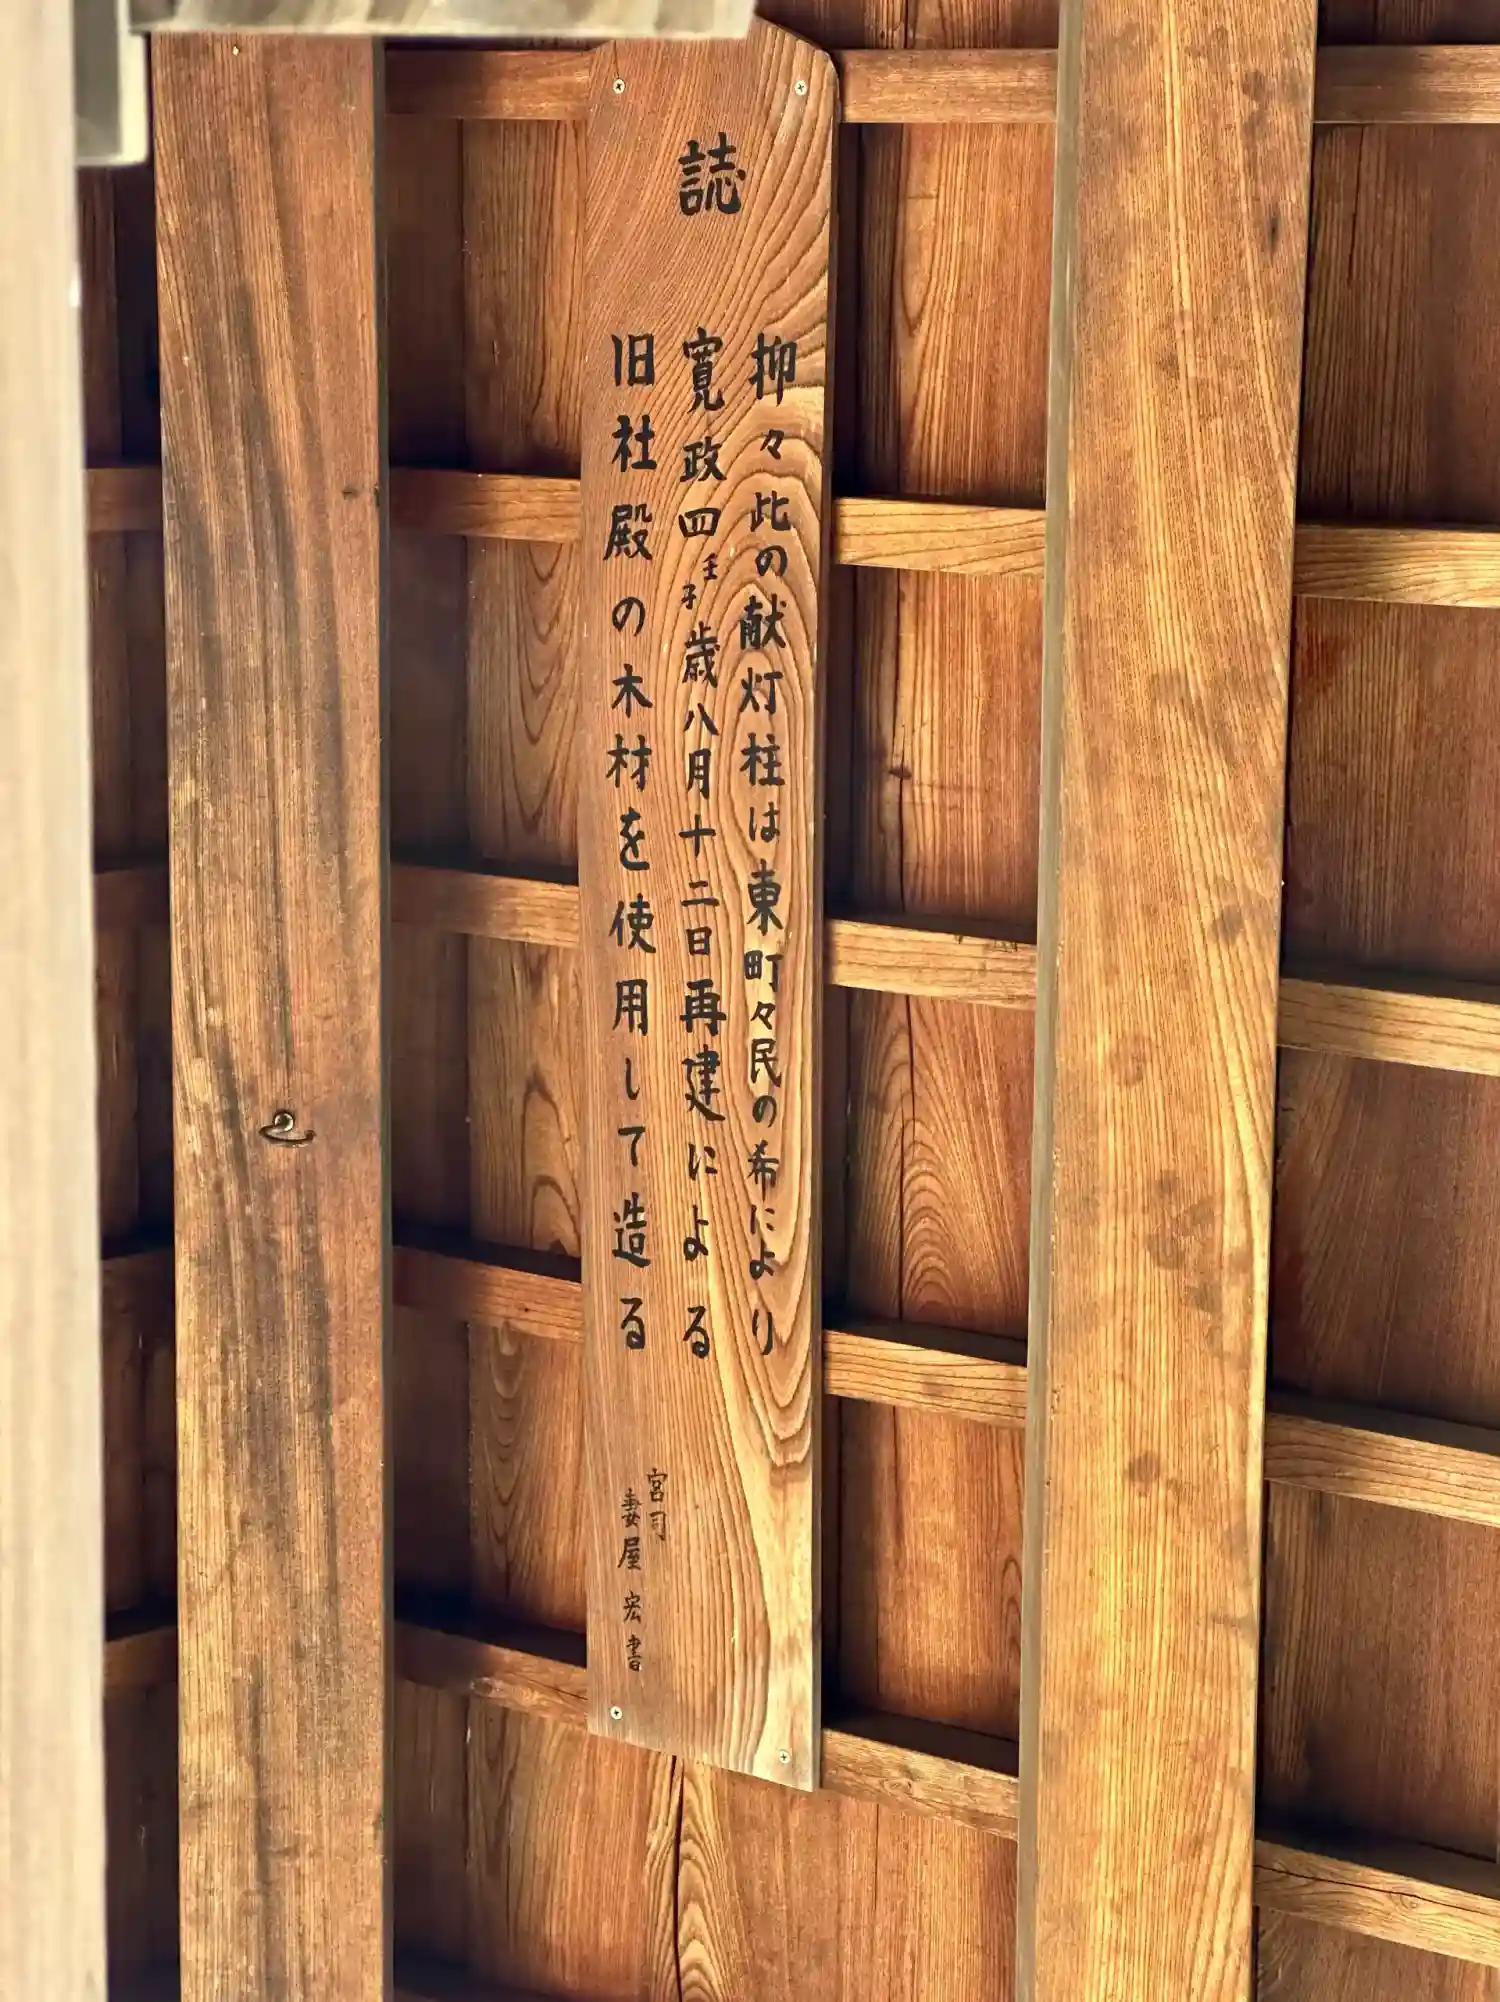 誌
抑々比の献灯柱は東町々民の希により
寛政四壬子歳八月十二日再建による
旧社殿の木材を使用して造る
宮司
妻屋宏書